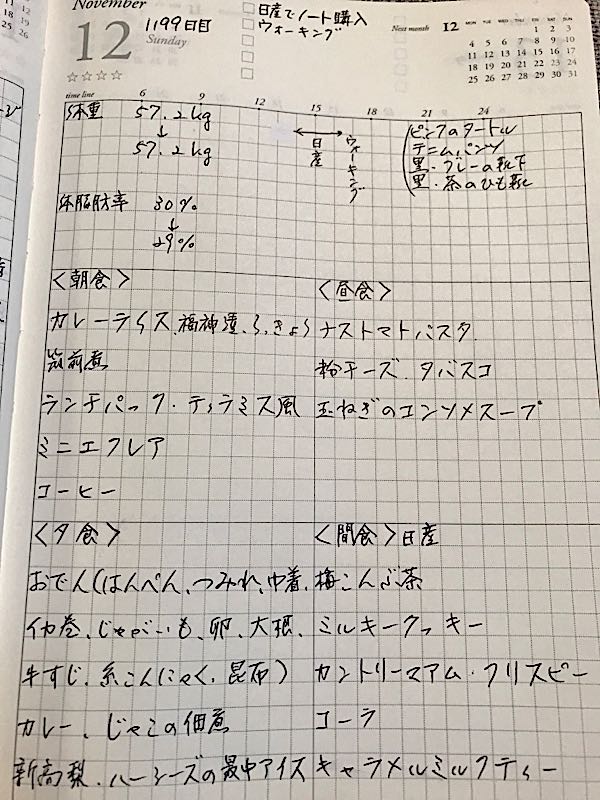 November
12
1199日目
Sunday
☆☆☆☆
日産でノート購入
ウォーキング
Next month 12
MON TUE WED THU FRI SAT SUN
1 2 3
4 5 6 7 8 9 10
11 12 13 14 15 16 17
18 19 20 21 22 23 24
25 26 27 28 29 30 31
time line 6 9 12 15 18 21 24
体重 57.2kg
↓
57.2kg
日産
ウォーキング
ピンクのタートル
デニムパンツ
黒・グレーの靴下
黒・茶のひも靴
体脂肪率 30%
↓
29%
<朝食>
カレーライス、福神漬、らっきょう
筑前煮
ランチパック・ティラミス風
ミニエクレア
コーヒー
<昼食>
ナストマトパスタ
粉チーズ、タバスコ
玉ねぎのコンソメスープ
<夕食>
おでん(はんぺん、つみれ、巾着、
イカ巻、じゃがいも、卵、大根、
牛すじ、糸こんにゃく、昆布)
カレー、じゃこの佃煮
新高梨、ハーシーズの最中アイス
<間食>日産
梅こんぶ茶
ミルキークッキー
カントリーマアム・クリスピー
コーラ
キャラメルミルクティー